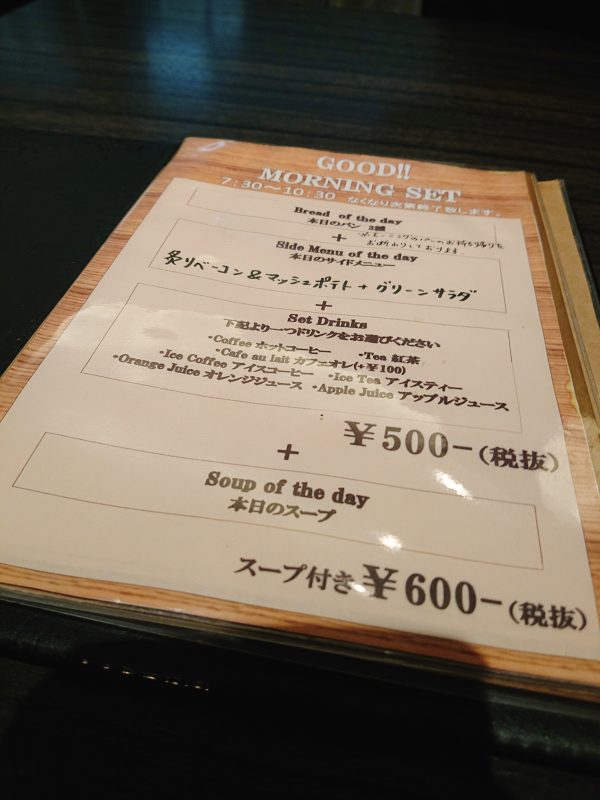 GOOD!!
MORNING SET
7:30～10:30 なくなり次第終了致します。
Bread of the day
本日のパン 3種
+
のお持ち帰りを
お断わりしております
Side Menu of the day
本日のサイドメニュー
炙りベーコン&マッシュポテト+グリーンサラダ
+
Set Drinks
下記より一つドリンクをお選びください
・Coffee ホットコーヒー ・Tea 紅茶
・Cafe au lait カフェオレ(+¥100)
・Ice Coffee アイスコーヒー ・Ice Tea アイスティー
・Orange Juice オレンジジュース ・Apple Juice アップルジュース
¥500-(税抜)
+
Soup of the day
本日のスープ
スープ付き ¥600-(税抜)